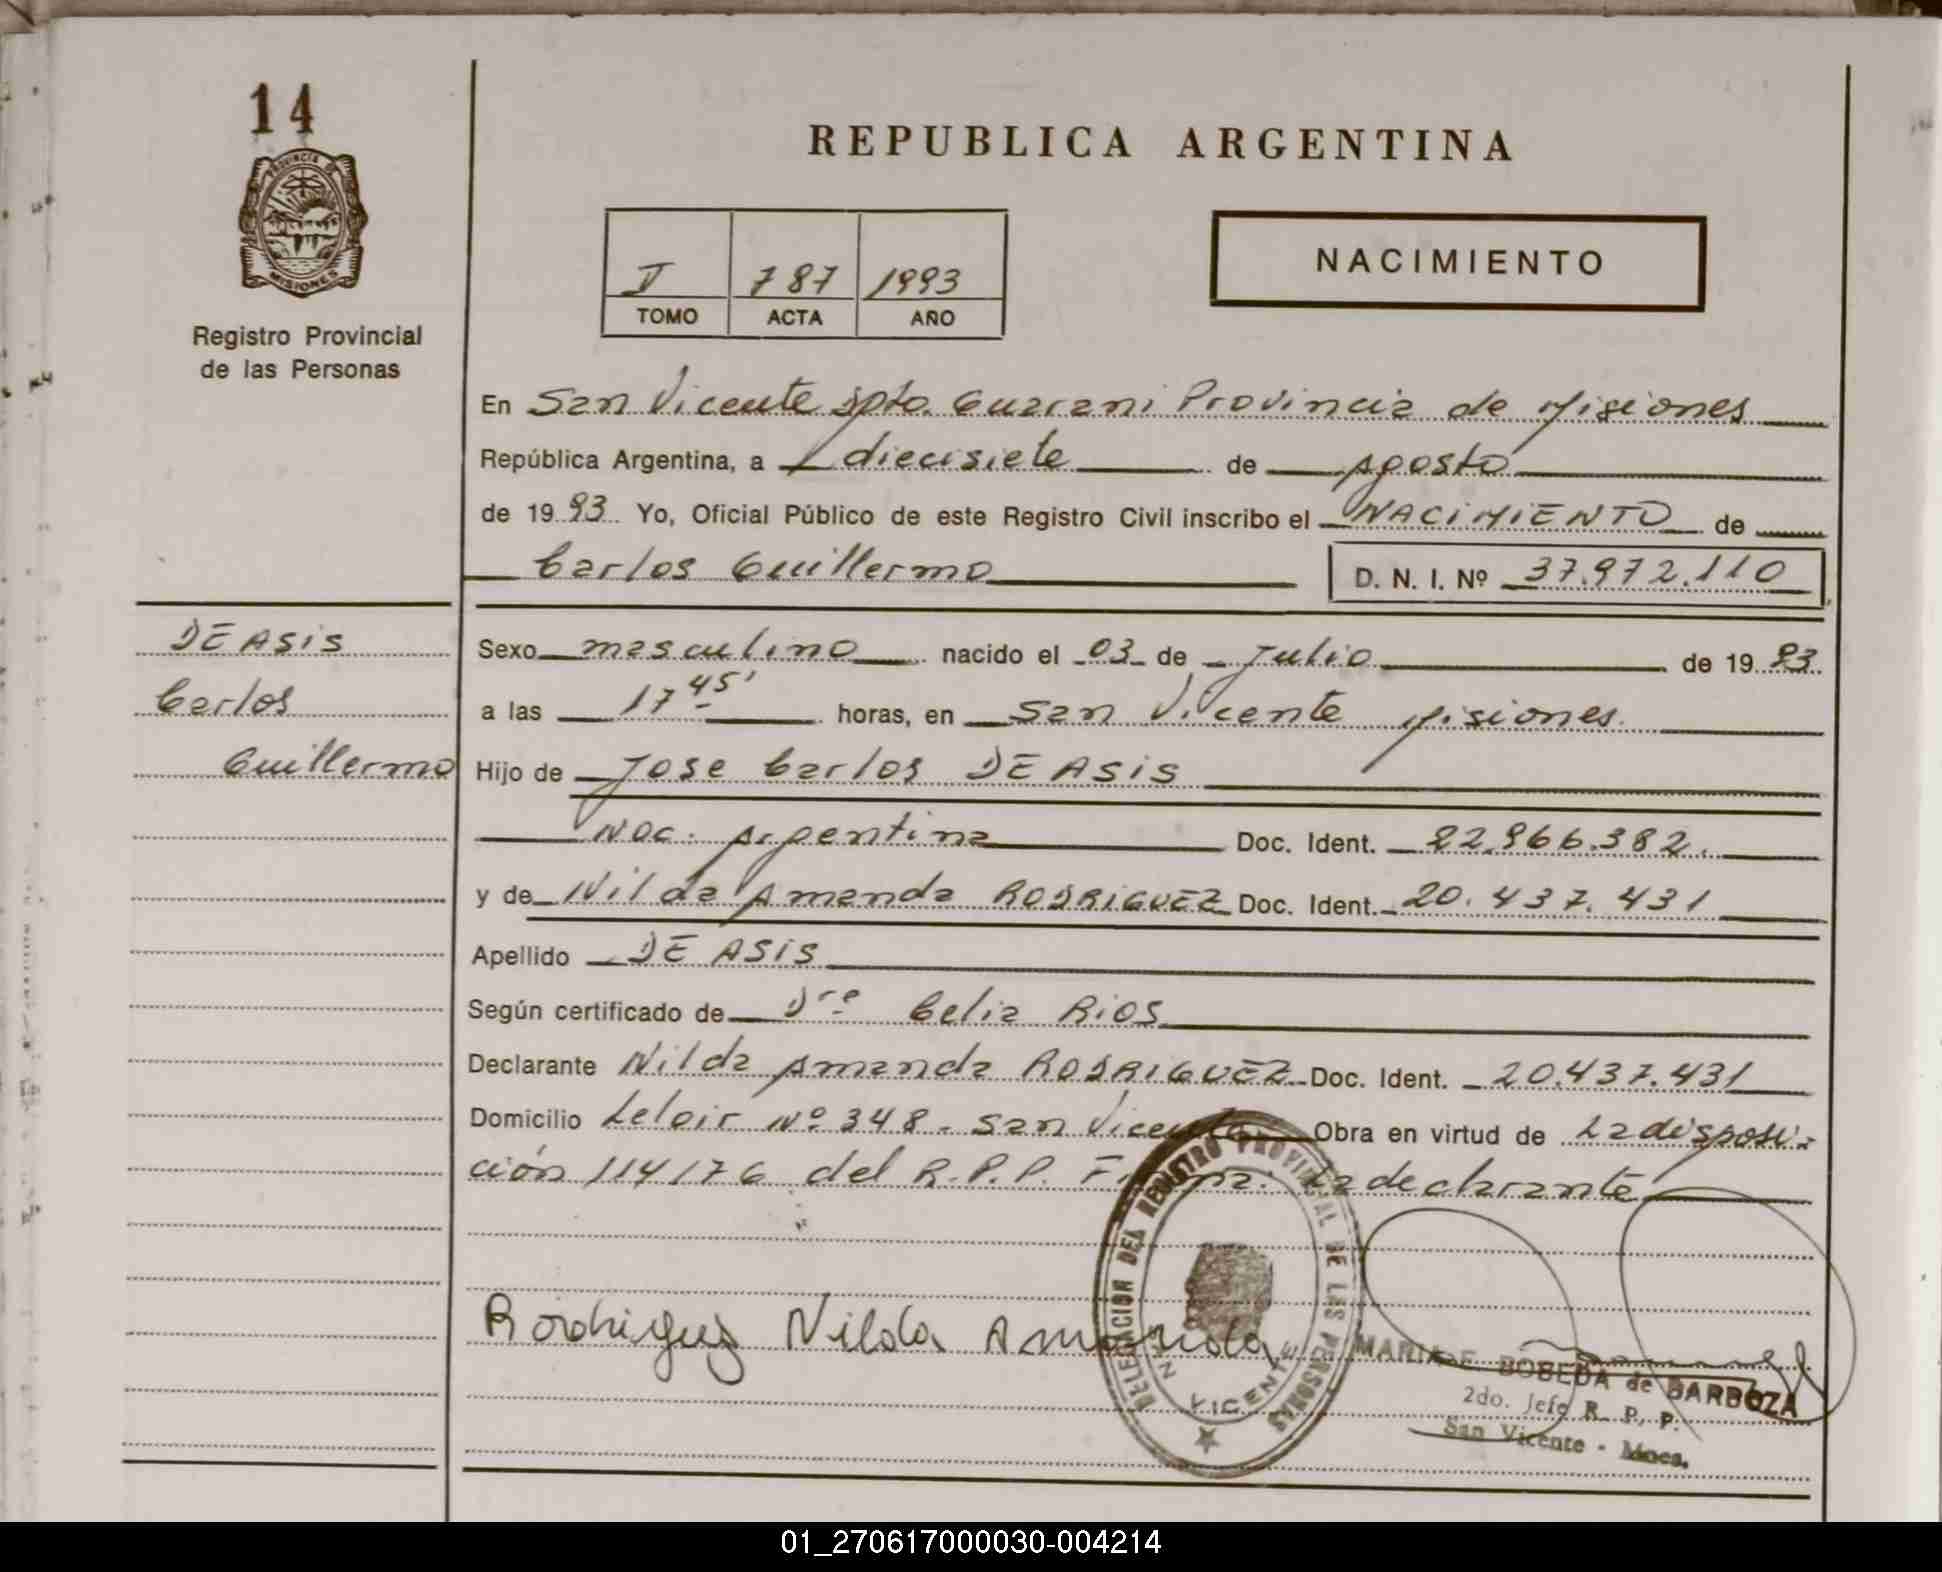 14
PROVINCIA DE
MISIONES
Registro Provincial
de las Personas
REPUBLICA ARGENTINA
V 787 1993
TOMO ACTA AÑO
NACIMIENTO
En San Vicente Dpto. Guarani Provincia de Misiones
República Argentina, a diecisiete de Agosto
de 1993 Yo, Oficial Público de este Registro Civil inscribo el NACIMIENTO de
Carlos Guillermo D. N. I. Nº 37.972.110
DE ASIS
Carlos
Guillermo
Sexo masculino nacido el 03 de Julio de 1993.
a las 17 45' horas, en San Vicente Misiones.
Hijo de Jose Carlos DE ASIS
Nac. Argentina Doc. Ident. 22.966.382.
y de Nilda Amanda RODRIGUEZ Doc. Ident. 20.437.431
Apellido DE ASIS
Según certificado de Dra Celia Rios
Declarante Nilda Amanda RODRIGUEZ Doc. Ident. 20.437.431
Domicilio Leloir Nº 348 - San Vicente Obra en virtud de La disposi-
ción 114/76 del R.P.P. Firma: La declarante
Rodriguez Nilda Amanda
DELEGACION DEL REGISTRO PROVINCIAL DE LAS PERSONAS
SAN VICENTE
MARIA E. BOBEDA de BARBOZA
2do. Jefe R. P. P.
San Vicente - Mnes.
01_270617000030-004214